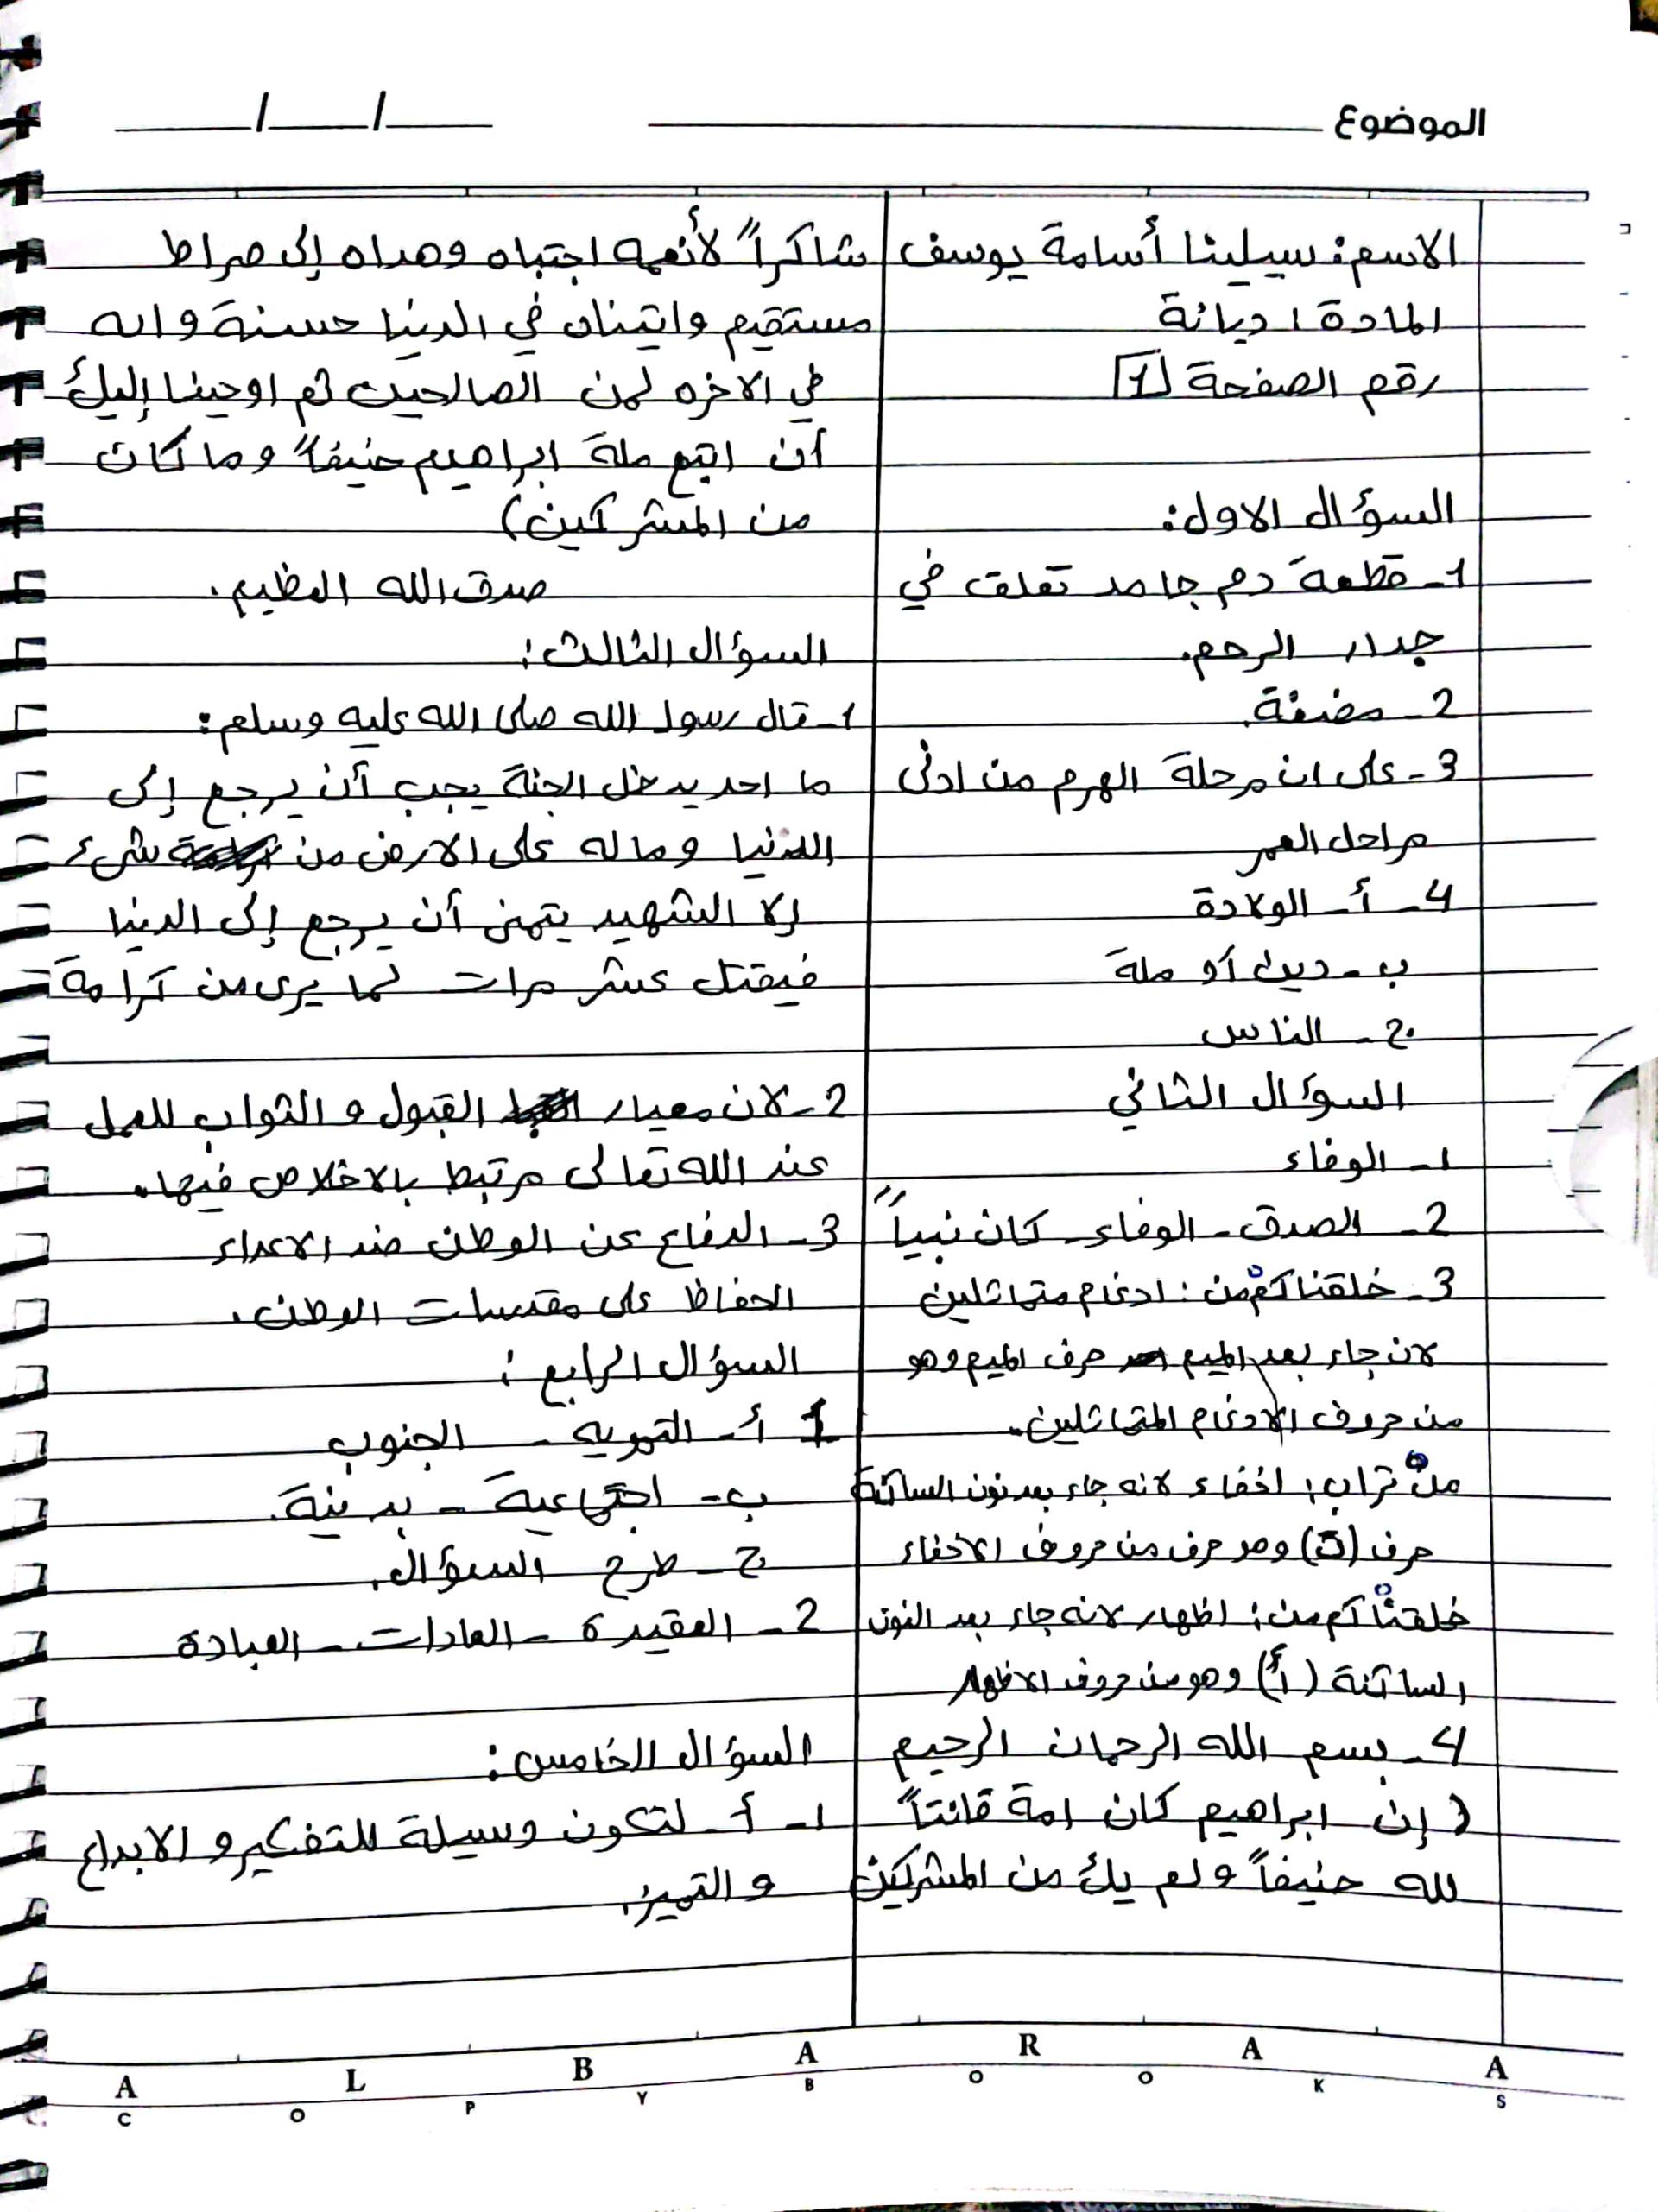 الموضوع
/ /
الاسم: سيلينا أسامة يوسف
المادة: ديانة
رقم الصفحة [1]
السؤال الاول:
1- قطعة دم جامد تعلق في
جدار الرحم.
2- مضغة.
3- على ان مرحلة الهرم من ادنى
مراحل العمر
4- أ- الولادة
ب- دين أو ملة
ج- الناس
السؤال الثاني
1- الوفاء
2- الصدق - الوفاء - كان نبياً
3- خلقناكمْ من: ادغام متماثلين
لان جاء بعد الميم حرف الميم وهو
من حروف الادغام المتماثلين.
منْ تراب: اخفاء لانه جاء بعد نون الساكنة
حرف (ت) وهو حرف من حروف الاخفاء
خلقنْاكم من: اظهار لانه جاء بعد النون
الساكنة (أ) وهو من حروف الاظهار
4- بسم الله الرحمان الرحيم
(إن ابراهيم كان امة قانتاً
لله حنيفاً ولم يك من المشركين
شاكراً لأنعمه اجتباه وهداه إلى صراط
مستقيم واتيناه في الدنيا حسنة وانه
في الاخره لمن الصالحين ثم اوحينا إليك
أن اتبع ملة ابراهيم حنيفاً وما كان
من المشركين)
صدق الله العظيم.
السؤال الثالث:
1- قال رسول الله صلى الله عليه وسلم:
ما احد يدخل الجنة يجب أن يرجع إلى
الدنيا وماله على الارض من شيء
إلا الشهيد يتمنى أن يرجع إلى الدنيا
فيقتل عشر مرات لما يرى من كرامة
2- لان معيار القبول و الثواب للعمل
عند الله تعالى مرتبط بالاخلاص فيها.
3- الدفاع عن الوطن ضد الاعداء
الحفاظ على مقدسات الوطن.
السؤال الرابع:
1 أ- التمويه - الجنوب
ب- اجتماعية - بدينة.
ج- طرح السؤال.
2- العقيدة - العادات - العبادة
السؤال الخامس:
1- أ- لتكون وسيلة للتفكير و الابداع
و التميز.
A L B A R A A
C O P Y B O O K S